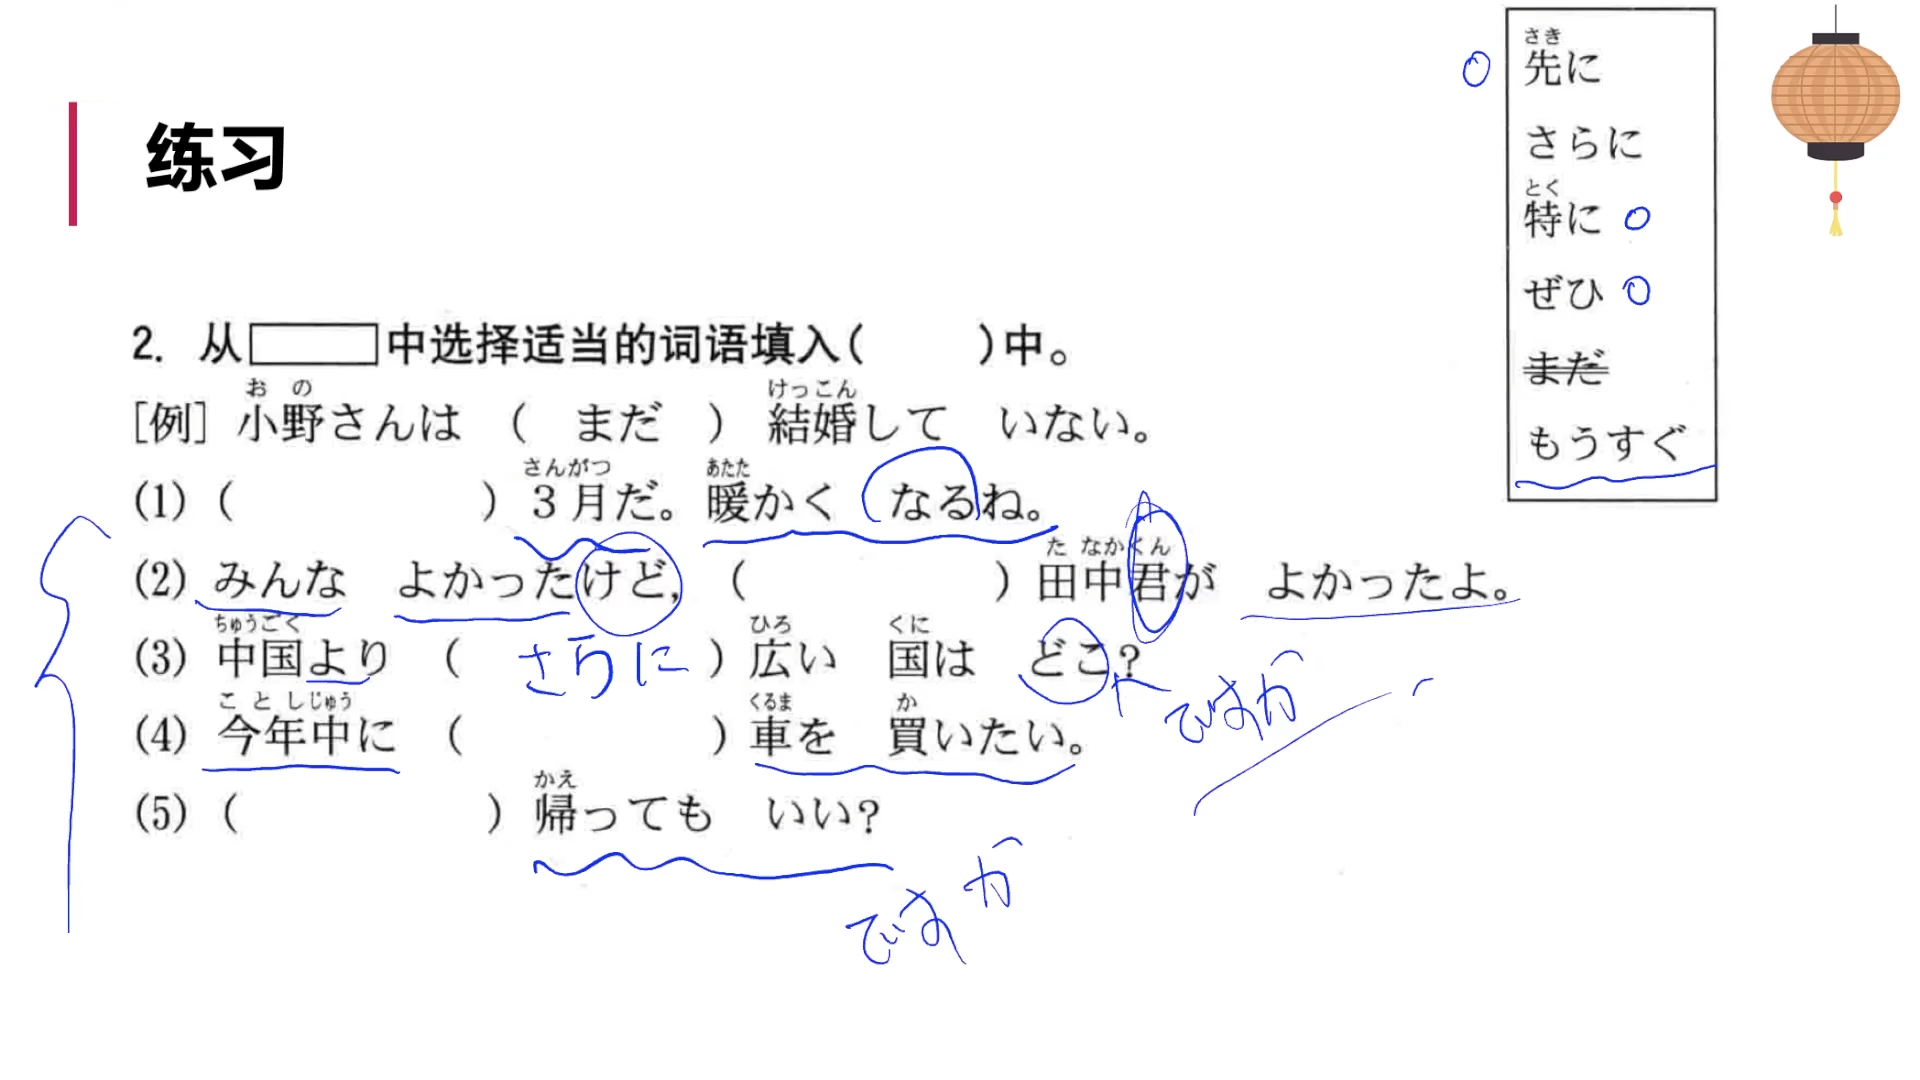 练习
先に
さき
さらに
特に
とく
ぜひ
まだ
もうすぐ
2. 从 中选择适当的词语填入( )中。
お の けっこん
[例] 小野さんは ( まだ ) 結婚して いない。
さんがつ あたた
(1) ( ) 3月だ。暖かく なるね。
た なかくん
(2) みんな よかったけど, ( ) 田中君が よかったよ。
ちゅうごく ひろ くに
(3) 中国より ( さらに ) 広い 国は どこ?
ですか
こ と しじゅう くるま か
(4) 今年中に ( ) 車を 買いたい。
かえ
(5) ( ) 帰っても いい?
ですか